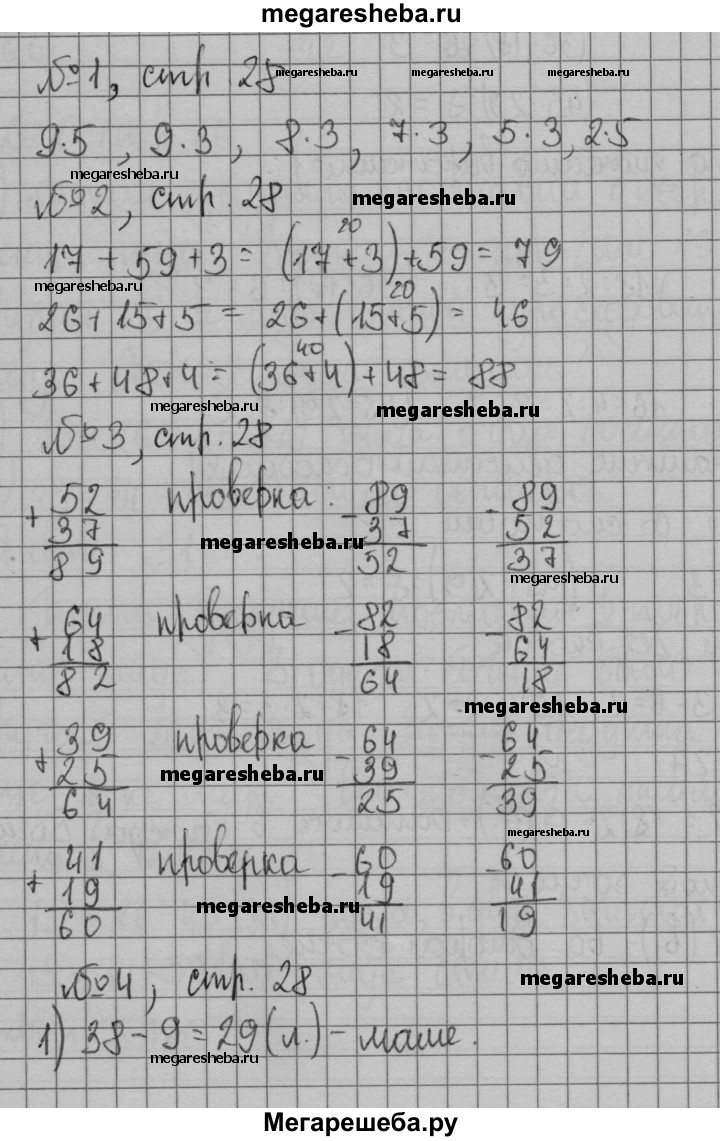 megaresheba.ru
№1, стр. 28 megaresheba.ru megaresheba.ru megaresheba.ru
9·5, 9·3, 8·3, 7·3, 5·3, 2·5
megaresheba.ru
№2, стр. 28 megaresheba.ru
20
17 + 59 + 3 = (17 + 3) + 59 = 79
megaresheba.ru
20
26 + 15 + 5 = 26 + (15 + 5) = 46
40
36 + 48 + 4 = (36 + 4) + 48 = 88
megaresheba.ru megaresheba.ru
№3, стр. 28
+ 52 проверка: - 89 - 89
37 37 52
megaresheba.ru
89 52 37
megaresheba.ru
+ 64 проверка - 82 - 82
18 18 64
82 64 18
megaresheba.ru
+ 39 проверка - 64 - 64
25 39 25
megaresheba.ru
64 25 39
megaresheba.ru
+ 41 проверка - 60 - 60
19 19 41
megaresheba.ru
60 41 19
№4, стр. 28 megaresheba.ru
1) 38 - 9 = 29 (л.) - маше.
megaresheba.ru
Мегарешеба.ру